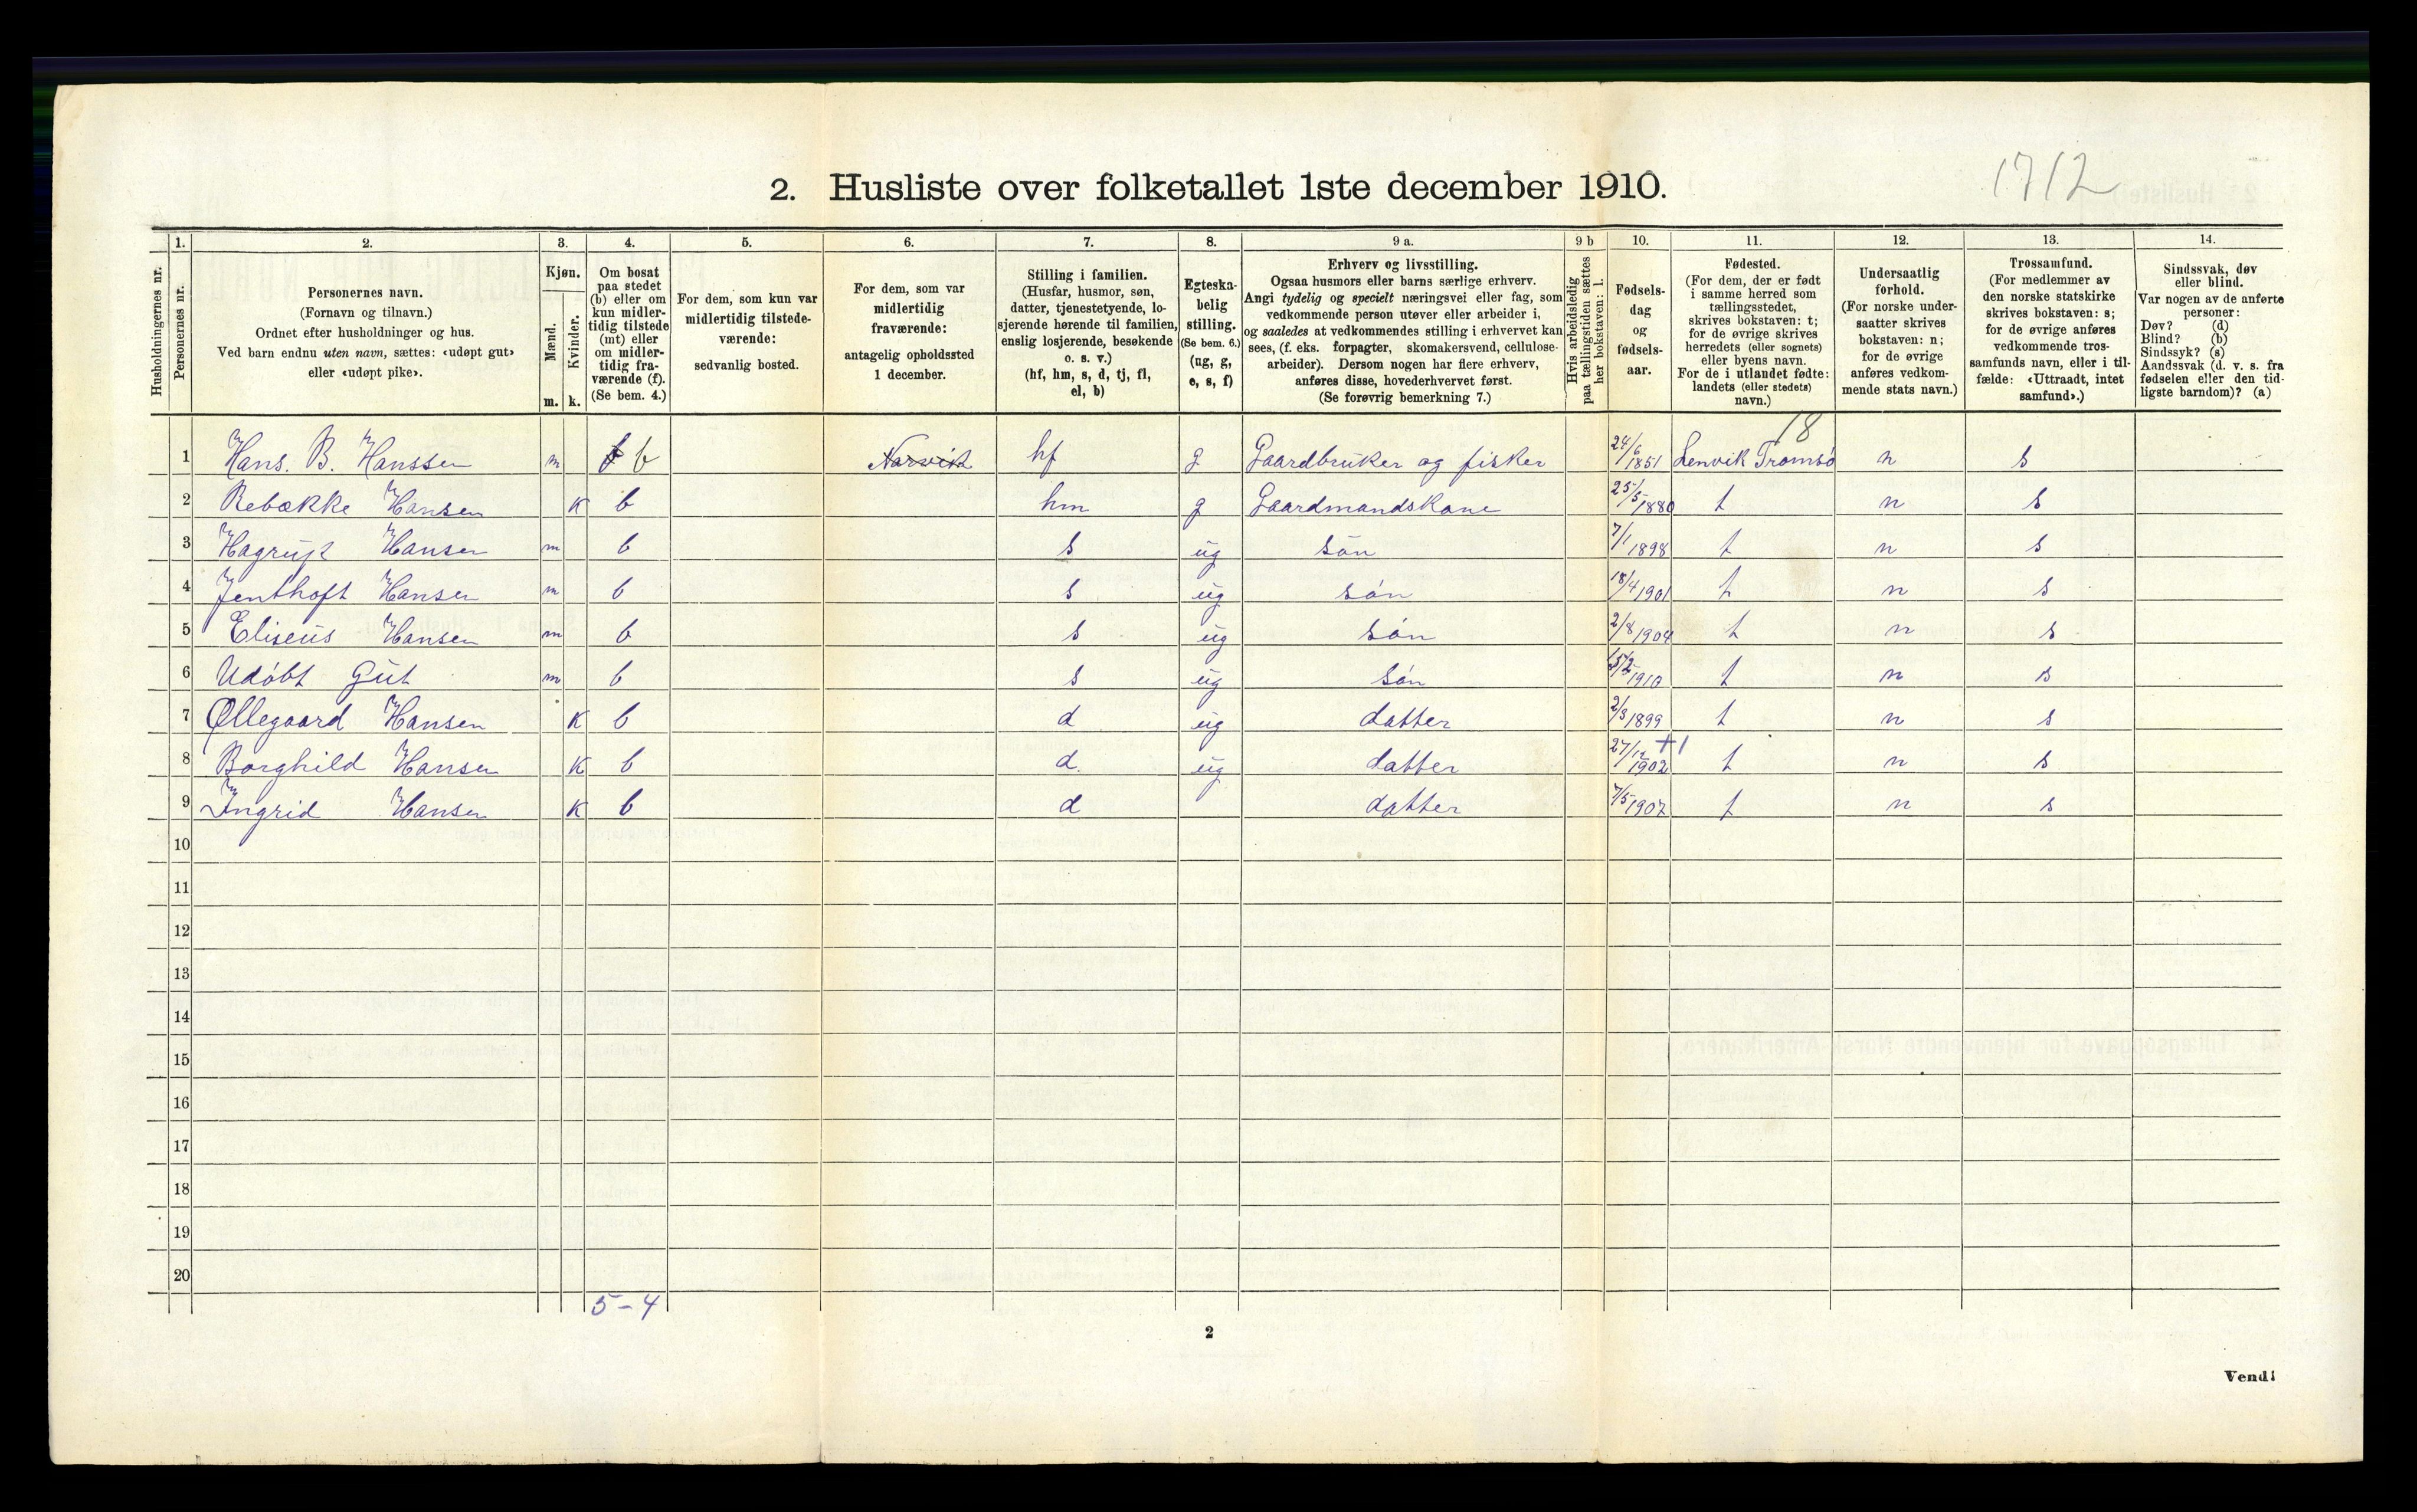 1712
2. Husliste over folketallet 1ste december 1910.
Husholdningernes nr.
1. Personernes nr.
2. Personernes navn.
(Fornavn og tilnavn.)
Ordnet efter husholdninger og hus.
Ved barn endnu uten navn, sættes: «udøpt gut»
eller «udøpt pike».
3. Kjøn.
Mænd. m.
Kvinder. k.
4. Om bosat
paa stedet
(b) eller om
kun midler-
tidig tilstede
(mt) eller
om midler-
tidig fra-
værende (f).
(Se bem. 4.)
5. For dem, som kun var
midlertidig tilstede-
værende:
sedvanlig bosted.
6. For dem, som var
midlertidig
fraværende:
antagelig opholdssted
1 december.
7. Stilling i familien.
(Husfar, husmor, søn,
datter, tjenestetyende, lo-
sjerende hørende til familien,
enslig losjerende, besøkende
o. s. v.)
(hf, hm, s, d, tj, fl,
el, b)
8. Egteska-
belig
stilling.
(Se bem. 6.)
(ug, g,
e, s, f)
9 a. Erhverv og livsstilling.
Ogsaa husmors eller barns særlige erhverv.
Angi tydelig og specielt næringsvei eller fag, som
vedkommende person utøver eller arbeider i,
og saaledes at vedkommendes stilling i erhvervet kan
sees, (f. eks. forpagter, skomakersvend, cellulose-
arbeider). Dersom nogen har flere erhverv,
anføres disse, hovederhvervet først.
(Se forøvrig bemerkning 7.)
9 b Hvis arbeidsledig
paa tællingstiden sættes
her bokstaven: l.
10. Fødsels-
dag
og
fødsels-
aar.
11. Fødested.
(For dem, der er født
i samme herred som
tællingsstedet,
skrives bokstaven: t;
for de øvrige skrives
herredets (eller sognets)
eller byens navn.
For de i utlandet fødte:
landets (eller stedets)
navn.)
12. Undersaatlig
forhold.
(For norske under-
saatter skrives
bokstaven: n;
for de øvrige
anføres vedkom-
mende stats navn.)
13. Trossamfund.
(For medlemmer av
den norske statskirke
skrives bokstaven: s;
for de øvrige anføres
vedkommende tros-
samfunds navn, eller i til-
fælde: «Uttraadt, intet
samfund».)
14. Sindssvak, døv
eller blind.
Var nogen av de anførte
personer:
Døv? (d)
Blind? (b)
Sindssyk? (s)
Aandssvak (d. v. s. fra
fødselen eller den tid-
ligste barndom)? (a)
18
1 Hans. B. Hanssen m f b Narvik hf g Gaardbruker og fisker 24/6 1851 Lenvik Tromsø n s
2 Rebække Hansen K b hm g Gaardmandskone 25/5 1880 t n s
3 Hansen m b s ug søn 7/1 1898 t n s
4 Jenthoft Hansen m b s ug søn 18/4 1901 t n s
5 Eliseus Hansen m b s ug søn 2/8 1904 t n s
6 Udøbt Gut m b s ug søn 1910 t n s
7 Øllegaard Hansen K b d ug datter 2/3 1899 t n s
8 Borghild Hansen K b d. ug datter 27/12 1902 +1 t n s
9 Ingrid Hansen K b d datter 7/5 1907 t n s
10
11
12
13
14
15
16
17
18
19
20
5-4
2
Vend!